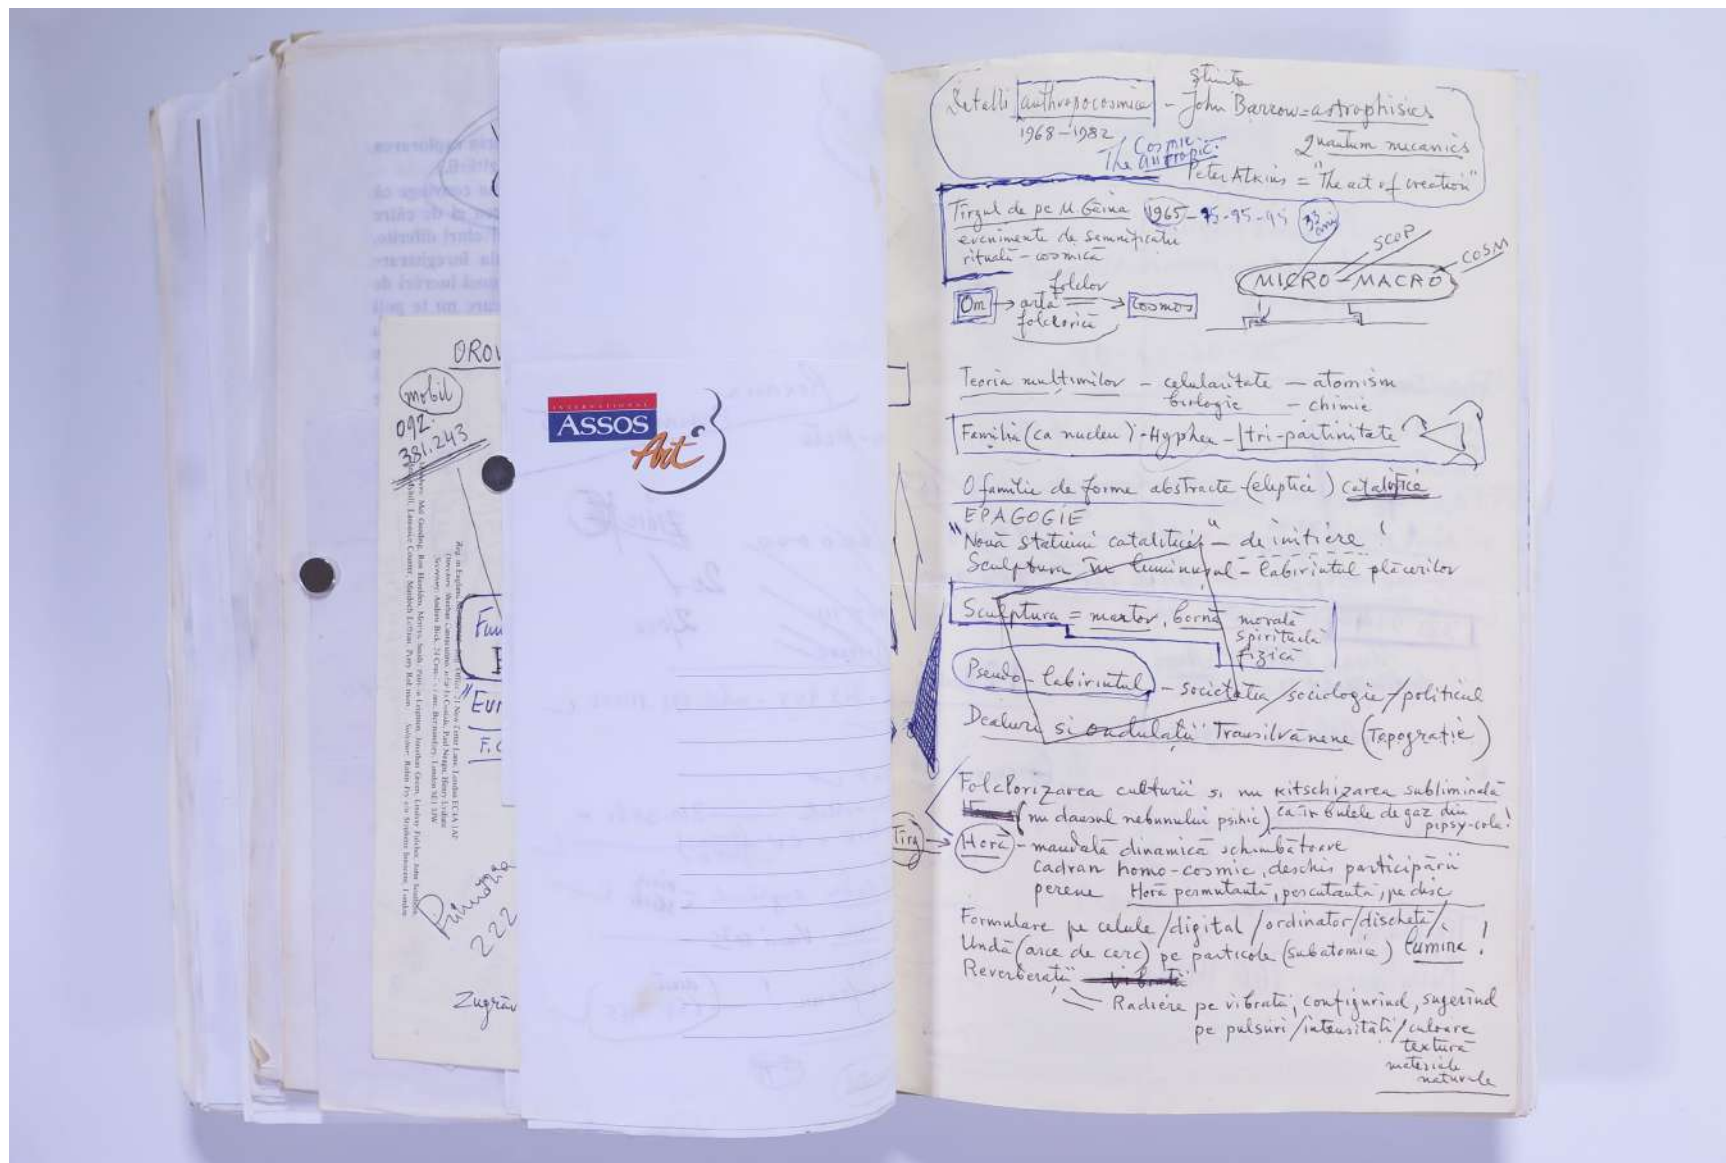 OROV
mobil
092.
381.243
Fun
"Eur
F.C
Primăria
222
Zugrăv
INTERNATIONAL
ASSOS
Art
Detalii anthropocosmice – John Barrow = astrophisics
Știință
1968–1982
quantum mecanics
The Cosmic
antropic.
Peter Atkins = "The act of creation"
Tîrgul de pe M. Găina 1965 – 75-85-95 33 ani
evenimente de semnificații
rituală – cosmică
SCOP
COSM
MICRO – MACRO
folclor
Om → artă → Cosmos
folclorică
Teoria mulțimilor – celularitate – atomism
biologie – chimie
Familia (ca nucleu) - Hyphen – tri-partinitate
O familie de forme abstracte (eleptice) catalitice
EPAGOGIE
"Nouă stațiuni catalitice" – de inițiere!
Sculptura în luminișul – labirintul plăcerilor
Sculptura = martor, bornă morală
spirituală
fizică
Pseudo-labirintul – societatea/sociologie/politicul
Dealuri și ondulații Transilvănene (Topografie)
Folclorizarea culturii și nu kitschizarea subliminală
(nu dansul nebunului psihic) ca în bulele de gaz din
pepsy-cola!
Tîrg → Horă – mandală dinamică schimbătoare
cadran homo-cosmic, deschis participării
perene Horă permutantă, percutantă, pe disc
Formulare pe celule/digital/ordinator/dischetă/
Undă (arce de cerc) pe particole (subatomic) lumină!
Reverberații vibrată
Radiere pe vibrată, configurînd, sugerînd
pe pulsuri/intensități/culoare
textură
materiale
naturale